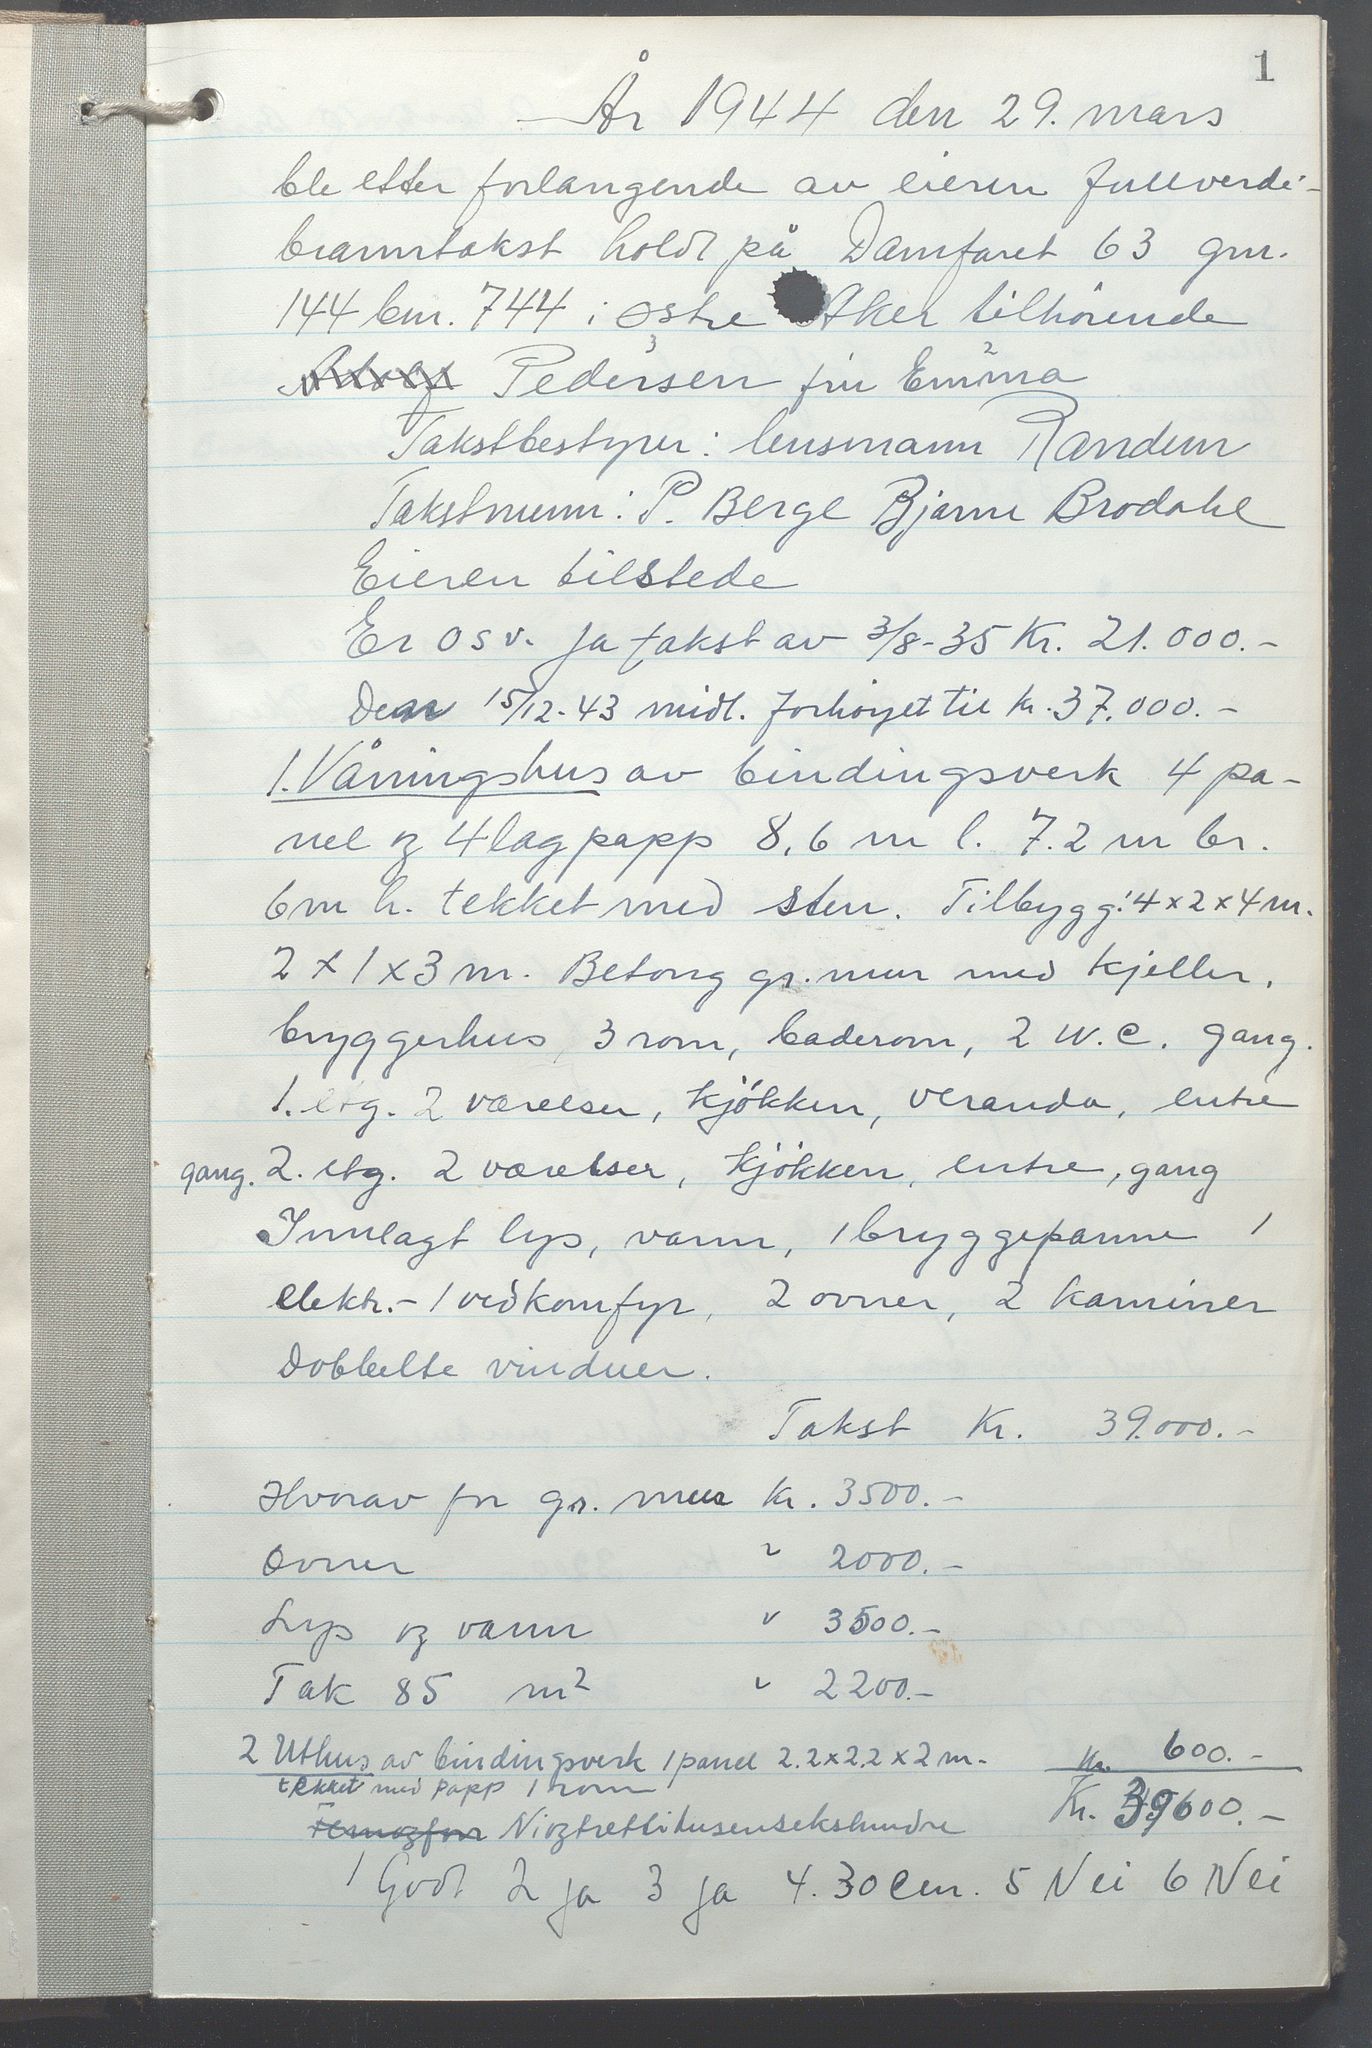 1
År 1944 den 29. mars
ble etter forlangende av eieren fullverdi-
branntakst holdt på Damfaret 63 gnr.
144 bnr. 744 i østre Aker tilhørende
Pedersen fru Emma
Takstbestyrer: lensmann Randem
Takstmenn: P. Berge Bjarne Brodahl
Eieren tilstede
Er osv. Ja takst av 3/8-35 Kr. 21.000.-
Den 15/12-43 midl. forhöyet til kr. 37.000.-
1. Våningshus av bindingsverk 4 pa-
nel og 4 lag papp 8,6 m l. 7.2 m br.
6 m h. tekket med sten. Tilbygg: 4 x 2 x 4 m.
2 x 1 x 3 m. Betong gr. mur med kjeller,
bryggerhus, 3 rom, baderom, 2 W.C. gang.
1. etg. 2 værelser, kjökken, veranda, entre
gang. 2. etg. 2 værelser, kjökken, entre, gang
Innlagt lys, vann, 1 bryggepanne 1
elektr.- 1 vedkomfyr, 2 ovner, 2 kaminer
Dobbelte vinduer.
Takst Kr. 39.000.-
Hvorav for gr. mur kr. 3500.-
Ovner " 2000.-
Lys og vann " 3500.-
Tak 85 m² " 2200.-
2 Uthus av bindingsverk 1 panel 2.2 x 2.2 x 2 m. Kr. 600.-
tekket med papp 1 rom
Niogtrettitusensekshundre Kr. 39600.-
1 Godt 2 ja 3 ja 4. 30 cm. 5 Nei 6 Nei